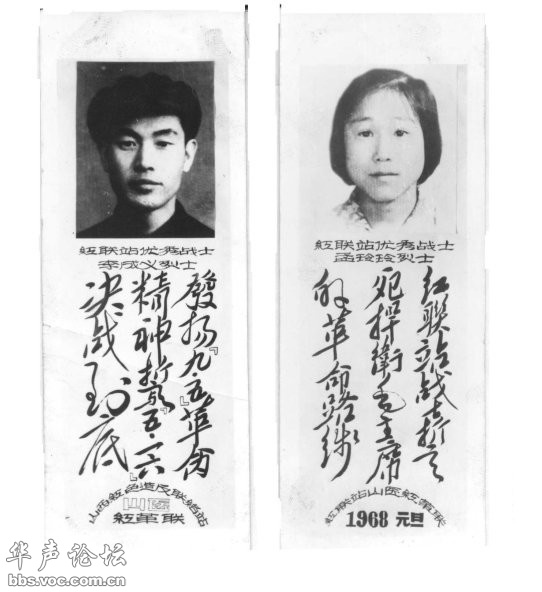 紅联站优秀战士
李成义烈士
發扬『九·五』革命
精神誓与『五·一六』
决战到底
山西紅色造反联络站
山医
紅革联
紅联站优秀战士
孟玲玲烈士
红联站战士誓
死捍衛毛主席
的革命路线
紅联站山医紅革联
1968 元旦
华声论坛
bbs.voc.com.cn